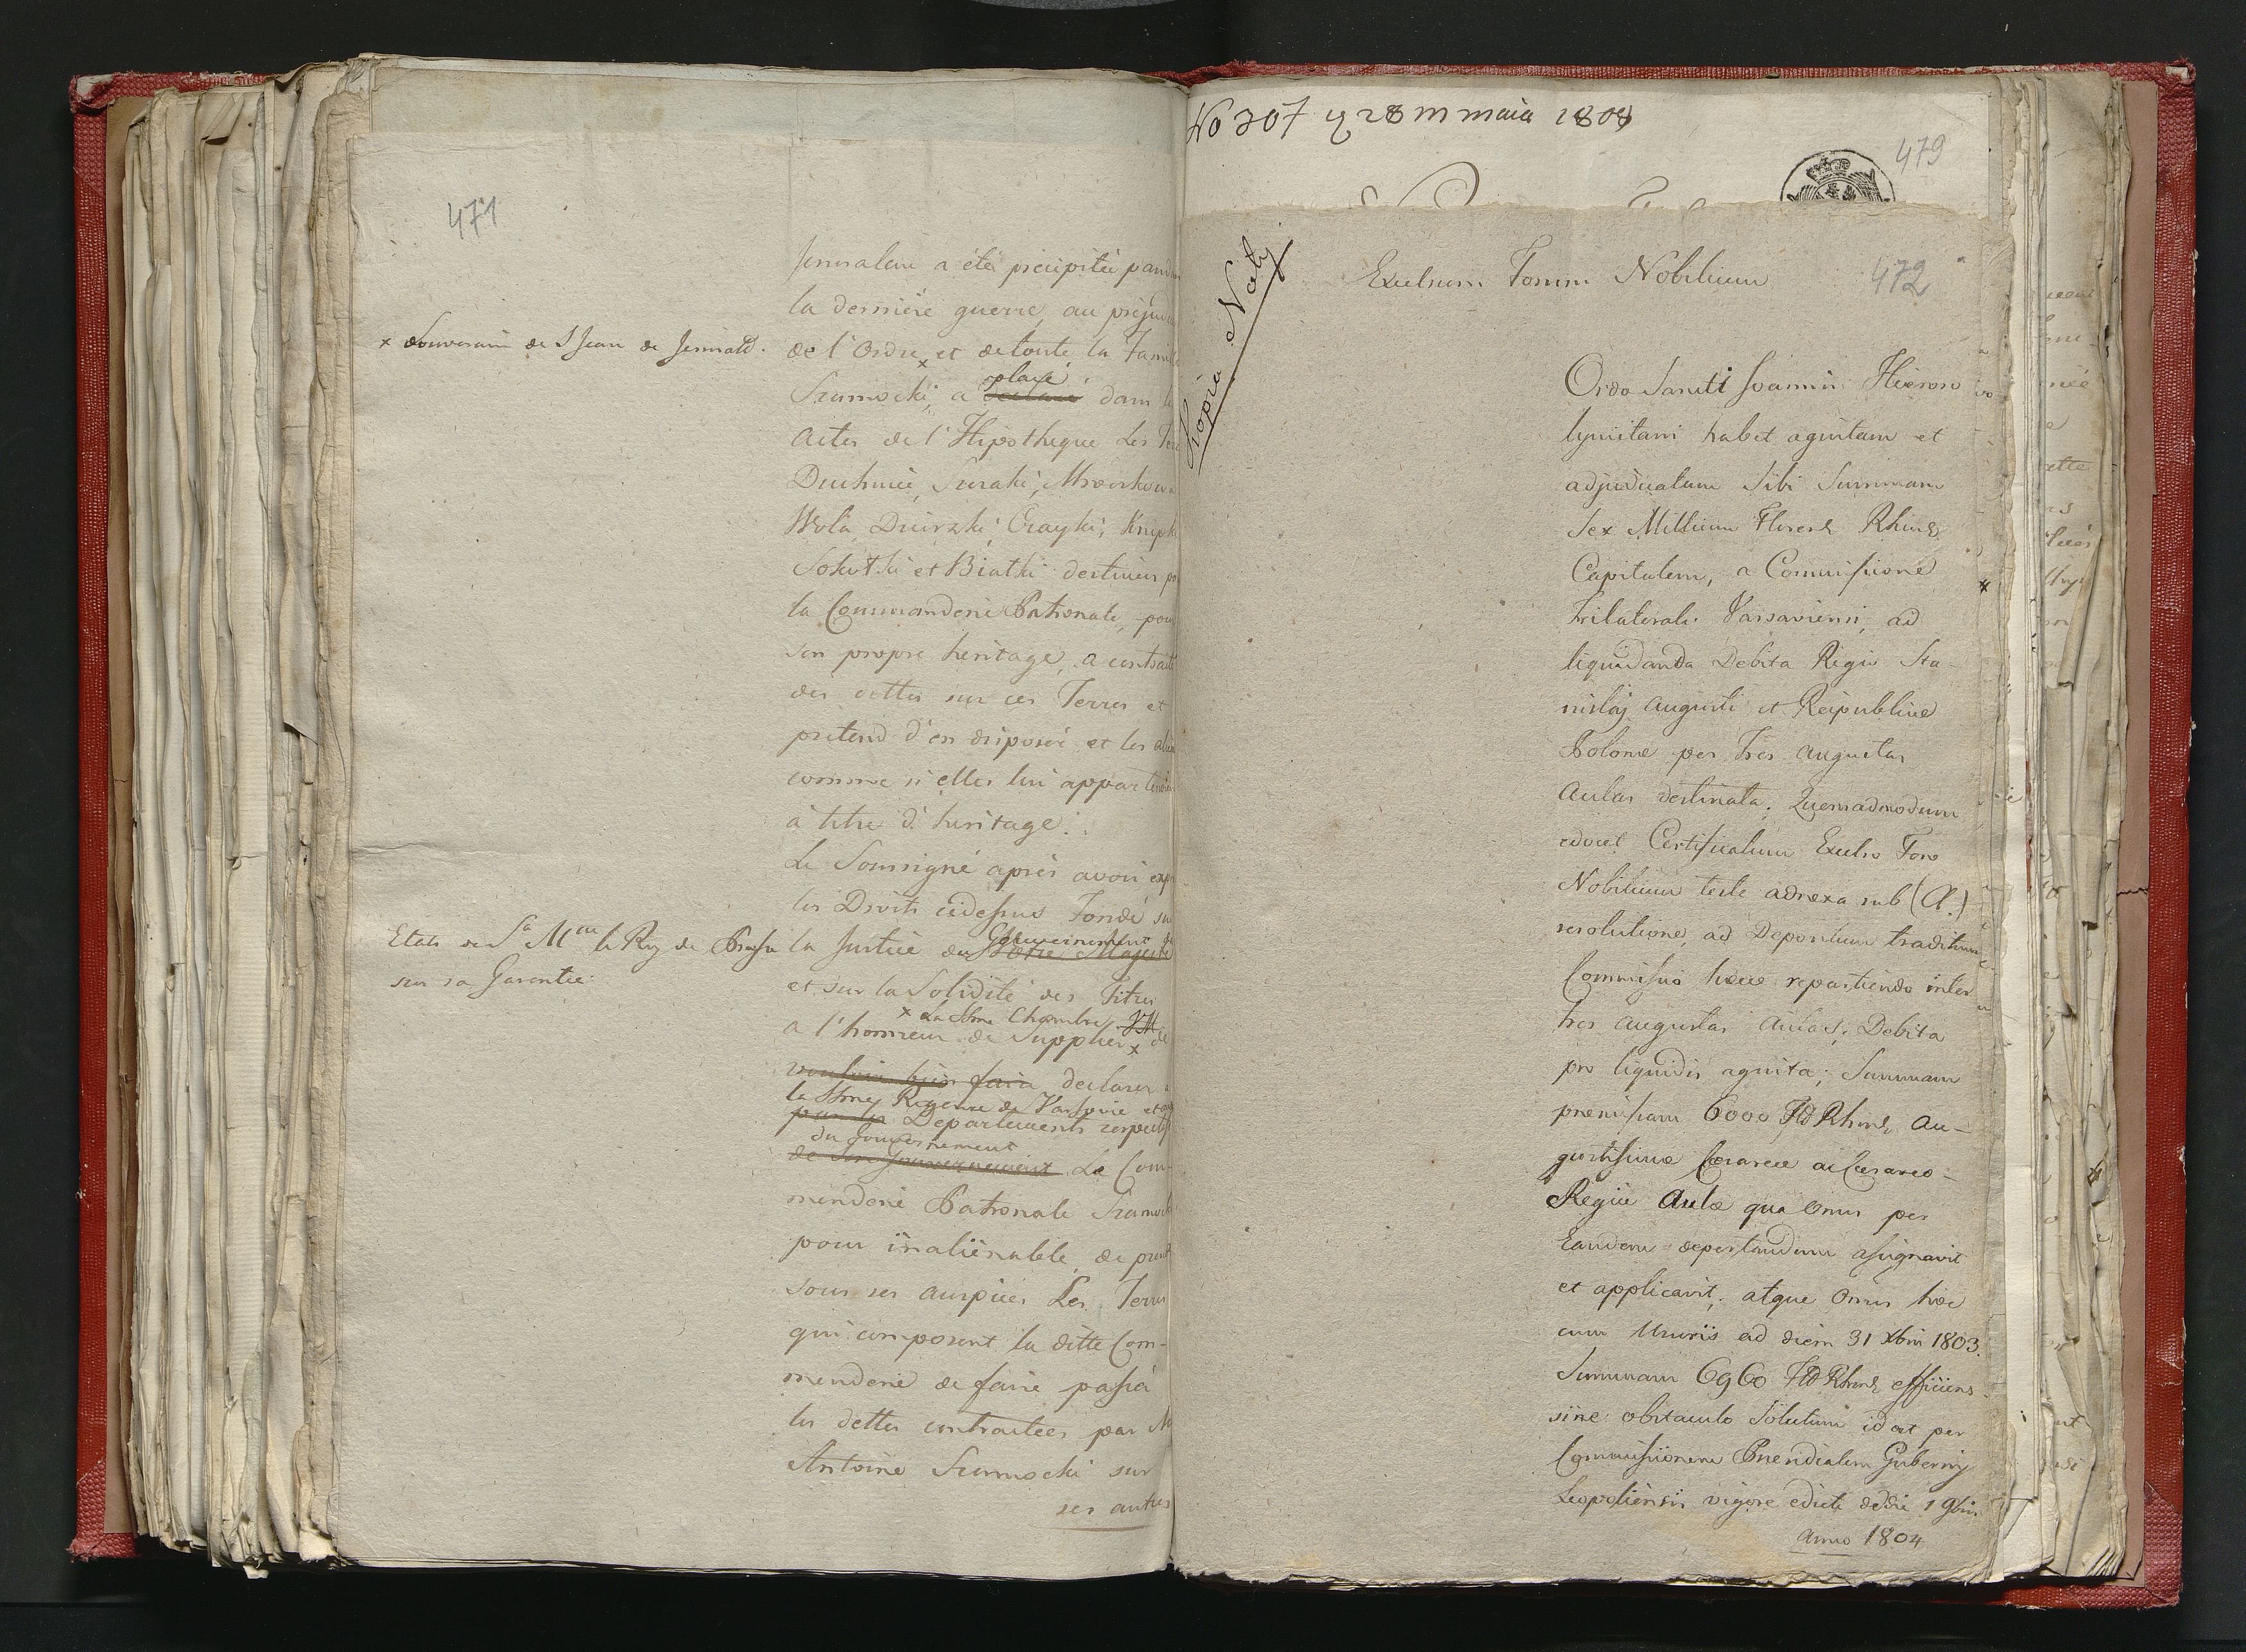 471
Jerusalem a été precipitée pend
la derniére guerre, au prejud
× Souverain de S Jean de Jerusal.
de l'Ordre × et de toute la Fami
Szamocki, a placé dans l
Actes de l'Hipotheque les Ter
Duchnie, Suraki, Mrowkow
Wola, Duirzki, Erayki, Krup
Sokutki et Biatki destinées p
la Commanderie Patronale, pour
son propre heritage, a contracté
des dettes sur ces Terres et
pretend d'en disposer et les alie
comme si elles lui appartenoi
à titre d'heritage.
Le Soussigné aprés avoir exp
les Droits cidessus Fondé su
Etats de Sa Mté le Roy de Prusse
sur sa Garantie
la Justice du Gouvernement
Votre Majesté
et sur la Solidité des Titres
× La Sme Chambre VM
a l'honneur de Supplier × de
vouloir bien faire declarer
la Sme Regence de Varsovie et
par les Departements respectif
du Gouvernement
de Son Gouvernement La Com-
menderie Patronale Szamock
pour inaliénable, de prend
sous ses auspices Les Terres
qui composent la ditte Com-
menderie de faire passer
les dettes contractées par M
Antoine Szamocki sur
ses autres
No 307 28 m maia 1808
479
Kopia Noty
Excelsum Forum Nobilium
472
Ordo Sancti Joannis Hieroso
lymitani habet agnitam et
adjudicatam Sibi Summam
Sex Millium Floren Rhens
Capitalem, a Commissione
Trilaterali Varsaviensi, ad
liquidanda Debita Regis Sta-
nislaj Augusti et Reipublicae
Polonae per Tres Augustas
Aulas destinata; Quemadmodum
edocet Certificatum Excelso Foro
Nobilium teste adnexa sub (A.)
resolutione, ad Depositum traditum
Commissio haec repartiendo inter
tres Augustas Aulas, Debita
pro liquidis agnita; Summam
premissam 6000 Fl Rhens Au-
gustissimae Caesareae ac Caesareo-
Regiae Aulae qua Onus per
Eandem deportandum assignavit
et applicavit; atque Onus hoc
cum Usuris ad diem 31 Xbris 1803.
Summam 6960 Fl Rhens efficiens
sine obstaculo Solutum id est per
Commissionem Gubernij
Leopoliensis vigore edicti dedie 1 9bris
Anno 1804